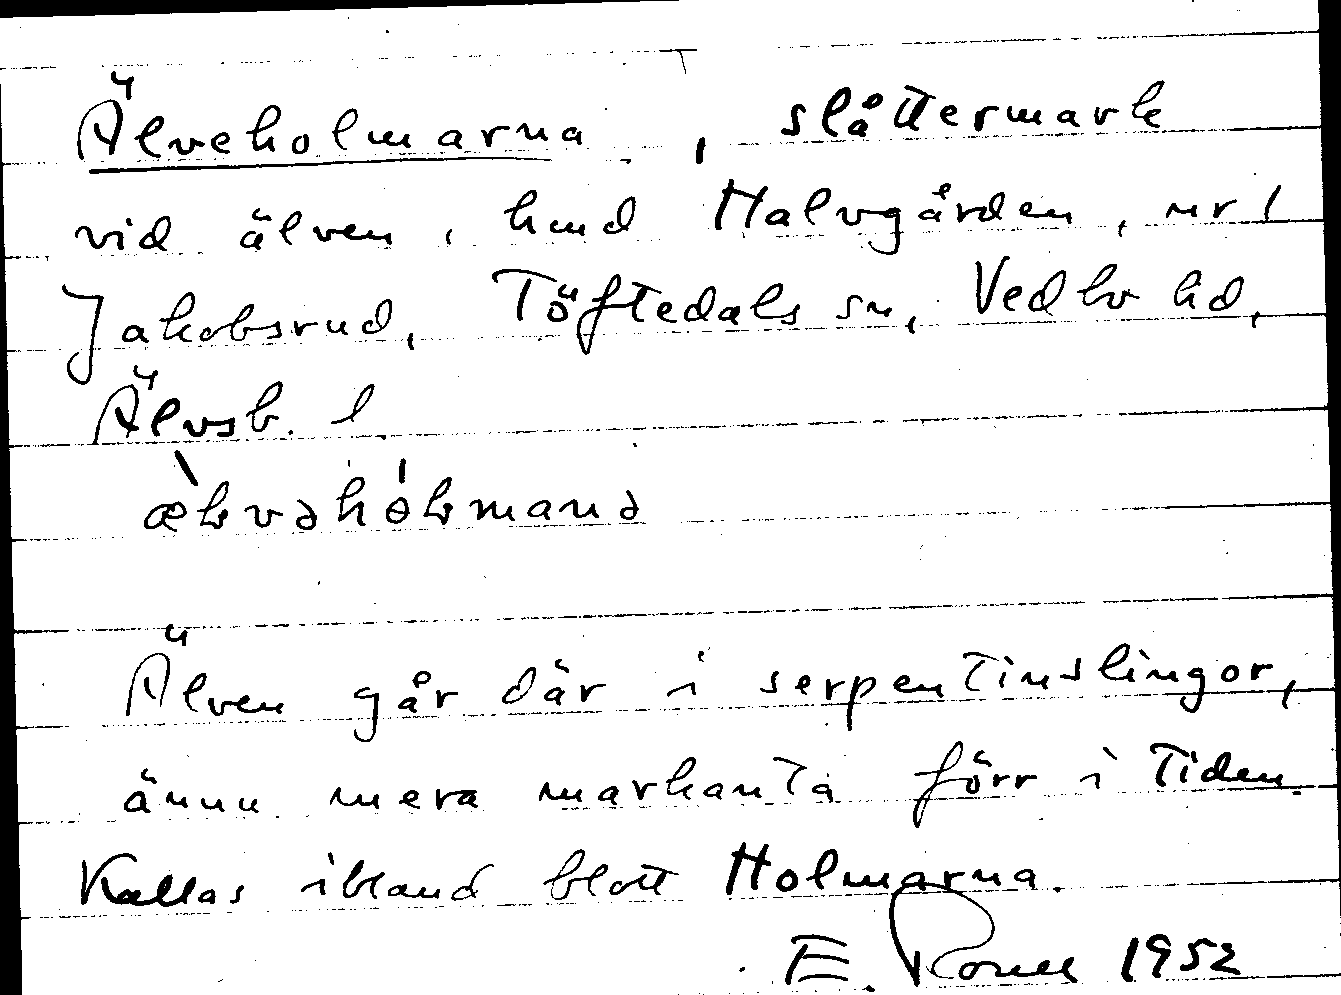 Älveholmarna, slåttermark
vid älven, hmd Halvgården, nr 1
Jakobsrud, Töftedals sn, Vedbo hd,
Älvsb. l
æ̀ƚvəhóƚmanə
Älven går där i serpentinslingor,
ännu mera markanta förr i tiden.
Kallas ibland blott Holmarna.
E. 1952